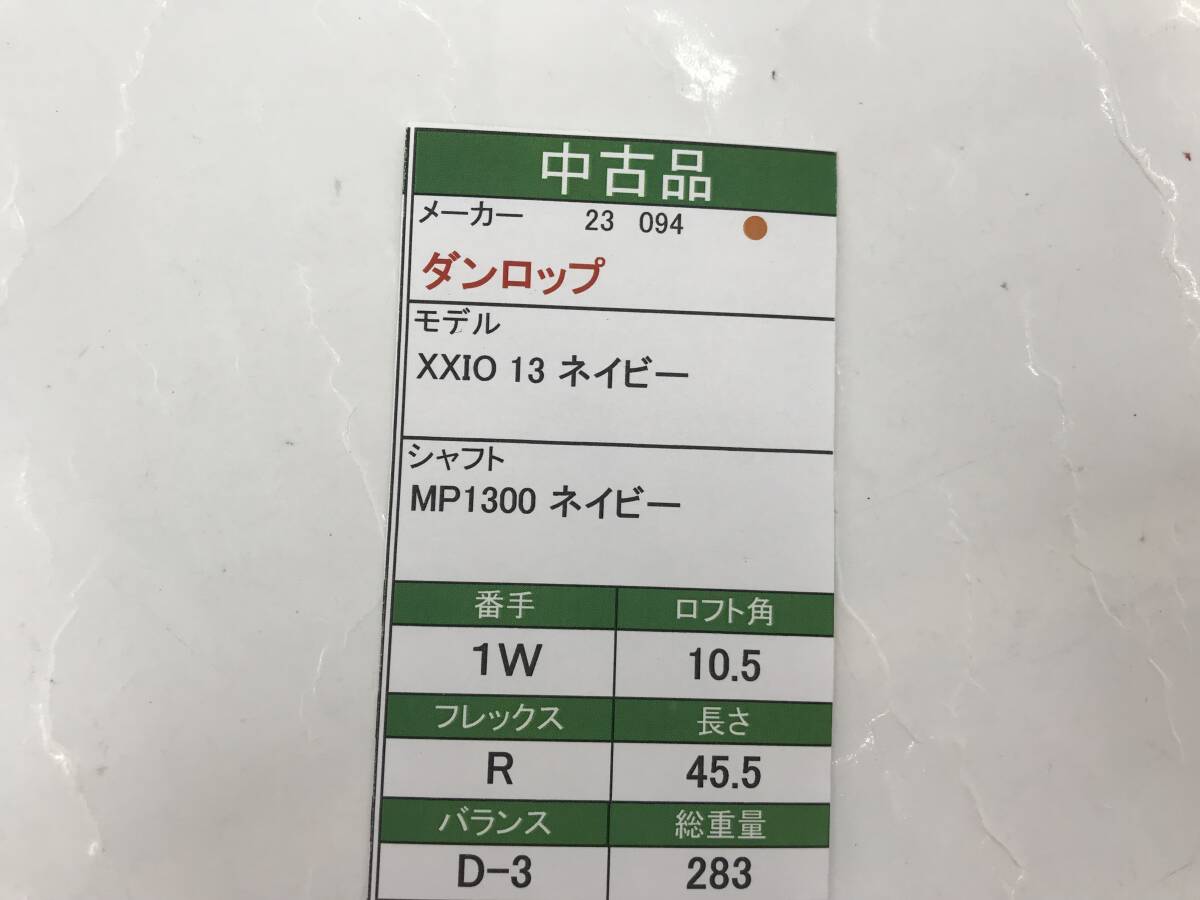 中古品
メーカー 23 094
ダンロップ
モデル
XXIO 13 ネイビー
シャフト
MP1300 ネイビー
番手 ロフト角
1W 10.5
フレックス 長さ
R 45.5
バランス 総重量
D-3 283